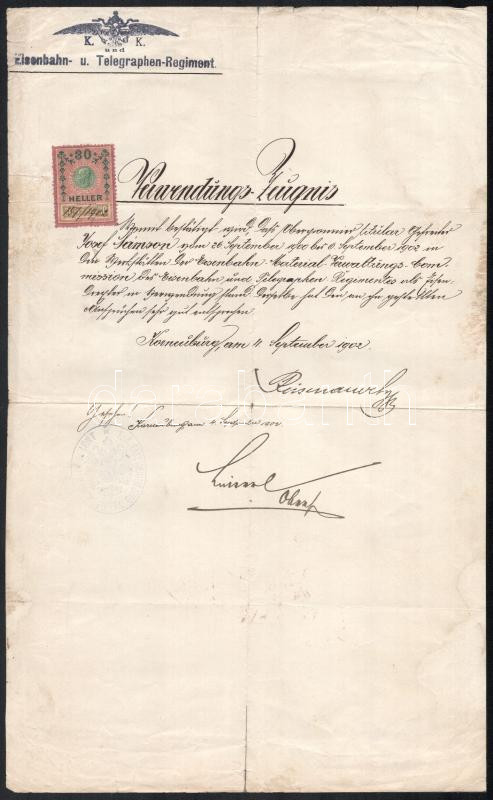 K. K.
und
Eisenbahn- u. Telegraphen-Regiment.
30
HELLER
Verwendungs-Zeugnis
Womit bestätigt wird, daß Oberpionnier titular Gefreiter
Josef Samson vom 26 September 1900 bis September 1902 in
den Werkstätten der Eisenbahn-Material-Verwaltungs-Com-
mission des Eisenbahn und Telegraphen Regimentes als Eisen-
dreher in Verwendung stand. Derselbe hat den an ihn gestellten
Ansprüchen sehr gut entsprochen.
Korneuburg, am 4 September 1902
Gesehen!
Korneuburg am 4. September 1902.
Oberst
darabanth